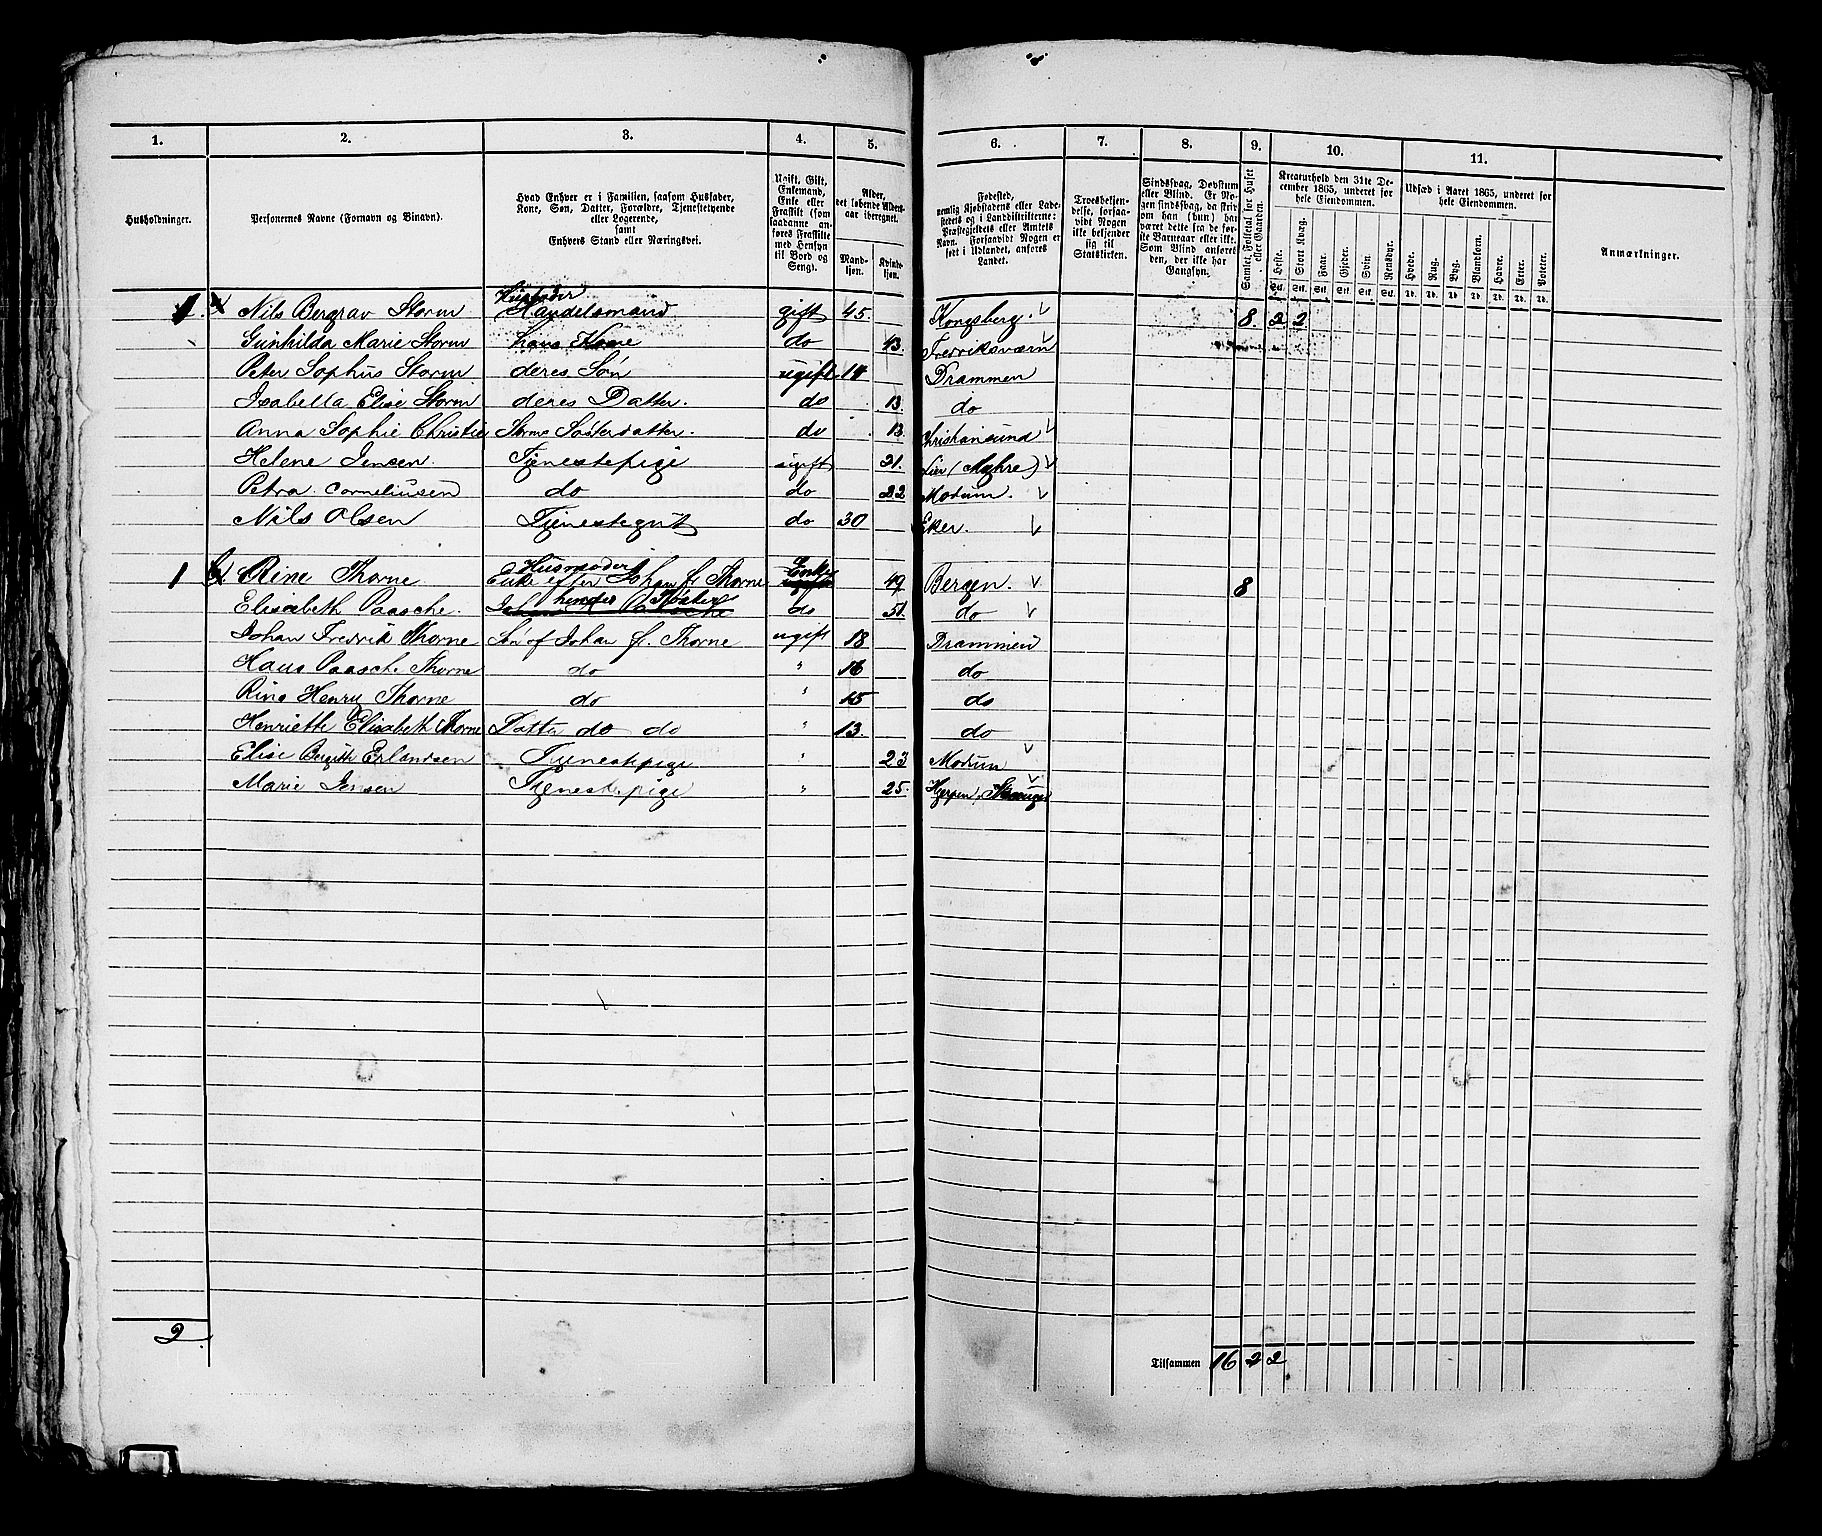 1. 2. 3. 4. 5. 6. 7. 8. 9. 10. 11.
Husholdninger.
Personernes Navne (Fornavn og Binavn).
Hvad Enhver er i Familien, saasom Husfader,
Kone, Søn, Datter, Forældre, Tjenestetyende
eller Logerende,
samt
Enhvers Stand eller Næringsvei.
Ugift, Gift,
Enkemand,
Enke eller
Fraskilt (som
saadanne an-
føres Fraskilte
med Hensyn
til Bord og
Seng).
Alder,
det løbende Alders-
aar iberegnet.
Mand-
kjøn.
Kvinde-
kjøn.
Fødested,
nemlig Kjøbstadens eller Lade-
stedets og i Landdistrikterne:
Præstegjeldets eller Amtets
Navn. Forsaavidt Nogen er
født i Udlandet, anføres
Landet.
Troesbekjen-
delse, forsaa-
vidt Nogen
ikke bekjender
sig til
Statskirken.
Sindssvag, Døvstum
eller Blind. Er No-
gen sindssvag, da skriv
om han (hun) har
været dette fra de før-
ste Barneaar eller ikke.
Som Blind anføres
den, der ikke har
Gangsyn.
Samlet Folketal for Huset
eller Gaarden.
Kreaturhold den 31te De-
cember 1865, underet for
hele Eiendommen.
Heste. Stort Kvæg. Faar. Gjeder. Svin. Rensdyr.
Stk. Stk. Stk. Stk. Stk. Stk.
Udsæd i Aaret 1865, underet for
hele Eiendommen.
Hvede. Rug. Byg. Blandkorn. Havre. Erter. Poteter.
Td. Td. Td. Td. Td. Td. Td.
Anmærkninger.
Husfader
1. Nils Bergrav Storm Handelsmand gift 45 Kongsberg. 8 2 2
Gunhilda Marie Storm hans Kone do 43. Fredriksværn
Peter Sophus Storm deres Søn ugift 14 Drammen
Isabella Elise Storm deres Datter. do 13. do
Anna Sophie Christie Storms Søsterdatter. do 13. Christiansund
Helene Jensen. Tjenestepige ugift 21. Lier
Petra Corneliusen do do 22 Modum.
Nils Olsen Tjenestegut do 30 Eker.
Husmoder Enke
1 Rine Thorne Enke efter Johan f. Thorne 49 Bergen. 8
hendes Søster
Elisabeth Paasche. do 51. do
Johan Fredrik Thorne Søn af Johan f. Thorne ugift 18 Drammen
Hans Paasche Thorne do " 16 do
Rine Henry Thorne do " 15 do
Henriette Elisabeth Thorne Datter do do " 13. do
Elise Bergith Erlandsen Tjenestepige " 23 Modum
Marie Jensen Tjenestepige " 25. Hjerpen
2
Tilsammen 16 2 2